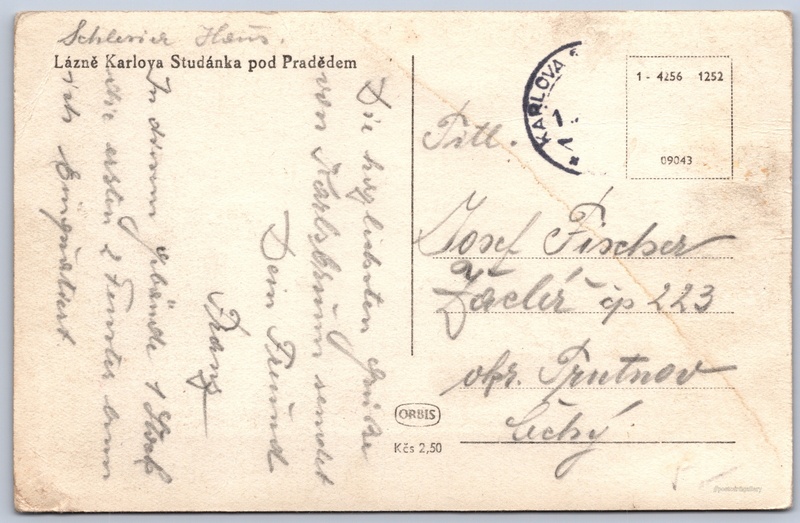 Schlesier Haus.
Lázně Karlova Studánka pod Pradědem
Die hzlichsten Grüße
von Karlsbrunn sendet
Dein Freund
Franz
In diesem gebäude 1 Stock
die ersten 2 Fenster
ich
KARLOVA
1 - 4256 1252
09043
Titl.
Josef Fischer
Žacléř čp 223
okr. Trutnov
Čechy.
ORBIS
Kčs 2,50